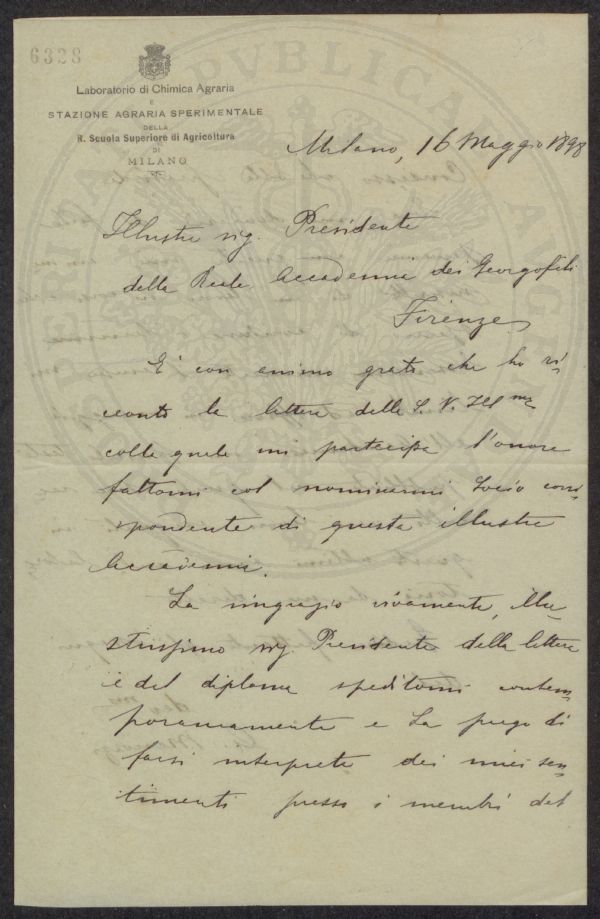 6328
Laboratorio di Chimica Agraria
E
STAZIONE AGRARIA SPERIMENTALE
DELLA
R. Scuola Superiore di Agricoltura
DI
MILANO
Milano, 16 Maggio 1898
Illustre sig. Presidente
della Reale Accademia dei Georgofili
Firenze
E' con animo grato che ho ri-
cevuto la lettera della S. V. Ill ma
colla quale mi partecipa l'onore
fattomi col nominarmi Socio corri-
spondente di questa illustre
Accademia.
La ringrazio vivamente, illu-
strissimo sig. Presidente della lettera
e del diploma speditomi contem-
poraneamente e La prego di
farsi interprete dei miei sen-
timenti presso i membri del